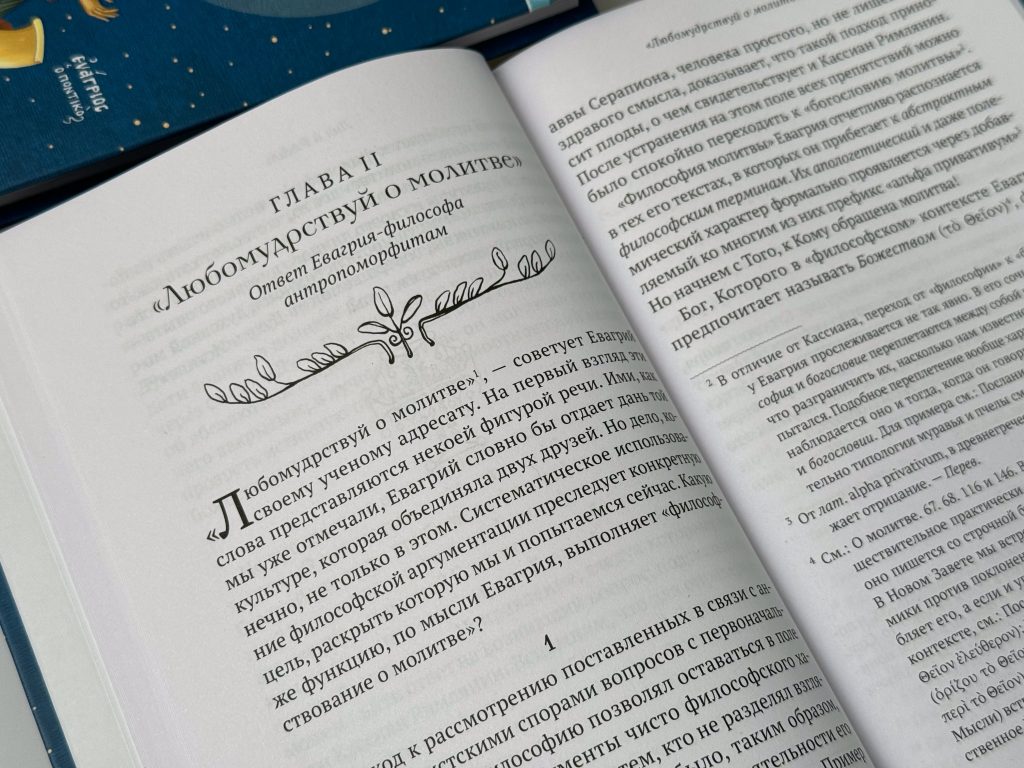 Εὐάγριος
ὁ Ποντικός
ГЛАВА II
«Любомудрствуй о молитве»
Ответ Евагрия-философа
антропоморфитам
«Любомудрствуй о молитве»¹, — советует Евагрий
своему ученому адресату. На первый взгляд эти
слова представляются некоей фигурой речи. Ими, как
мы уже отмечали, Евагрий словно бы отдает дань той
культуре, которая объединяла двух друзей. Но дело, ко-
нечно, не только в этом. Систематическое использова-
ние философской аргументации преследует конкретную
цель, раскрыть которую мы и попытаемся сейчас. Какую
же функцию, по мысли Евагрия, выполняет «философ-
ствование о молитве»?
1
ход к рассмотрению поставленных в связи с ан-
истскими спорами вопросов с первоначаль-
философию позволял оставаться в поле
менты чисто философского ха-
тем, кто не разделял взгля-
было, таким образом,
тельности его
Пример
«Любомудрствуй о молитв
аввы Серапиона, человека простого, но не лише
здравого смысла, доказывает, что такой подход прино-
сит плоды, о чем свидетельствует и Кассиан Римлянин.
После устранения на этом поле всех препятствий можно
было спокойно переходить к «богословию молитвы»².
«Философия молитвы» Евагрия отчетливо распознается
в тех его текстах, в которых он прибегает к абстрактным
философским терминам. Их апологетический и даже поле-
мический характер формально проявляется через добав-
ляемый ко многим из них префикс «альфа привативум»³
Но начнем с Того, к Кому обращена молитва!
Бог, Которого в «философском» контексте Евагр
предпочитает называть Божеством (τὸ Θεῖον)⁴,
2 В отличие от Кассиана, переход от «философии» к «б
у Евагрия прослеживается не так явно. В его сочи
софия и богословие переплетаются между собой
что разграничить их, насколько нам известно
пытался. Подобное переплетение вообще хара
наблюдается оно и тогда, когда он говор
и богословии. Для примера см.: Послани
тельно типологии муравья и пчелы см
3 От лат. alpha privativum, в древнегрече
жает отрицание. — Перев.
4 См.: О молитве. 67. 68. 116 и 146. В
ществительное практически
оно пишется со строчной б
В Новом Завете мы встр
мики против поклонен
бляет его, а если и у
контексте, см.: Посл
Θεῖον ἐλεύθερον);
(ὁρίζου τὸ Θεῖο
περὶ τὸ Θεῖον
Мысли) вст
ственное